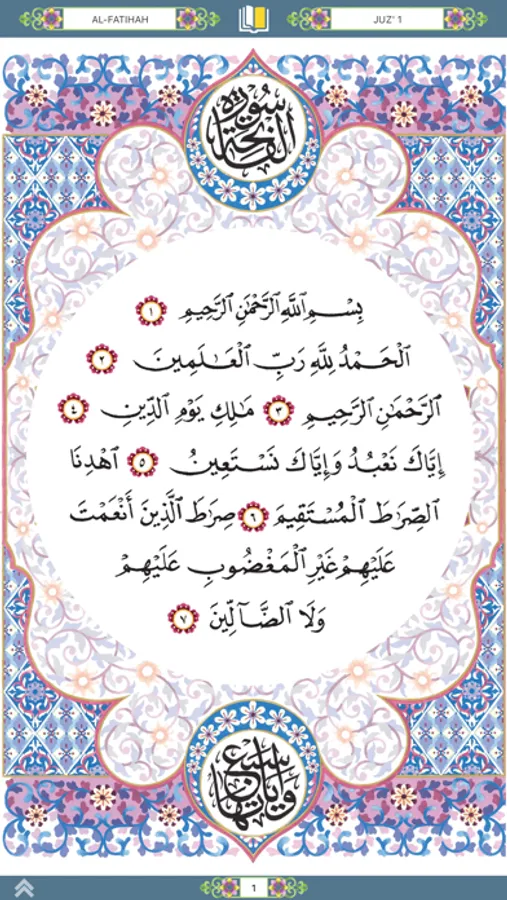 AL-FATIHAH JUZ' 1
سورة الفاتحة
بِسْمِ ٱللَّهِ ٱلرَّحْمَٰنِ ٱلرَّحِيمِ ١
ٱلْحَمْدُ لِلَّهِ رَبِّ ٱلْعَٰلَمِينَ ٢
ٱلرَّحْمَٰنِ ٱلرَّحِيمِ ٣ مَٰلِكِ يَوْمِ ٱلدِّينِ ٤
إِيَّاكَ نَعْبُدُ وَإِيَّاكَ نَسْتَعِينُ ٥ ٱهْدِنَا
ٱلصِّرَٰطَ ٱلْمُسْتَقِيمَ ٦ صِرَٰطَ ٱلَّذِينَ أَنْعَمْتَ
عَلَيْهِمْ غَيْرِ ٱلْمَغْضُوبِ عَلَيْهِمْ
وَلَا ٱلضَّآلِّينَ ٧
وآياتها سبع
1